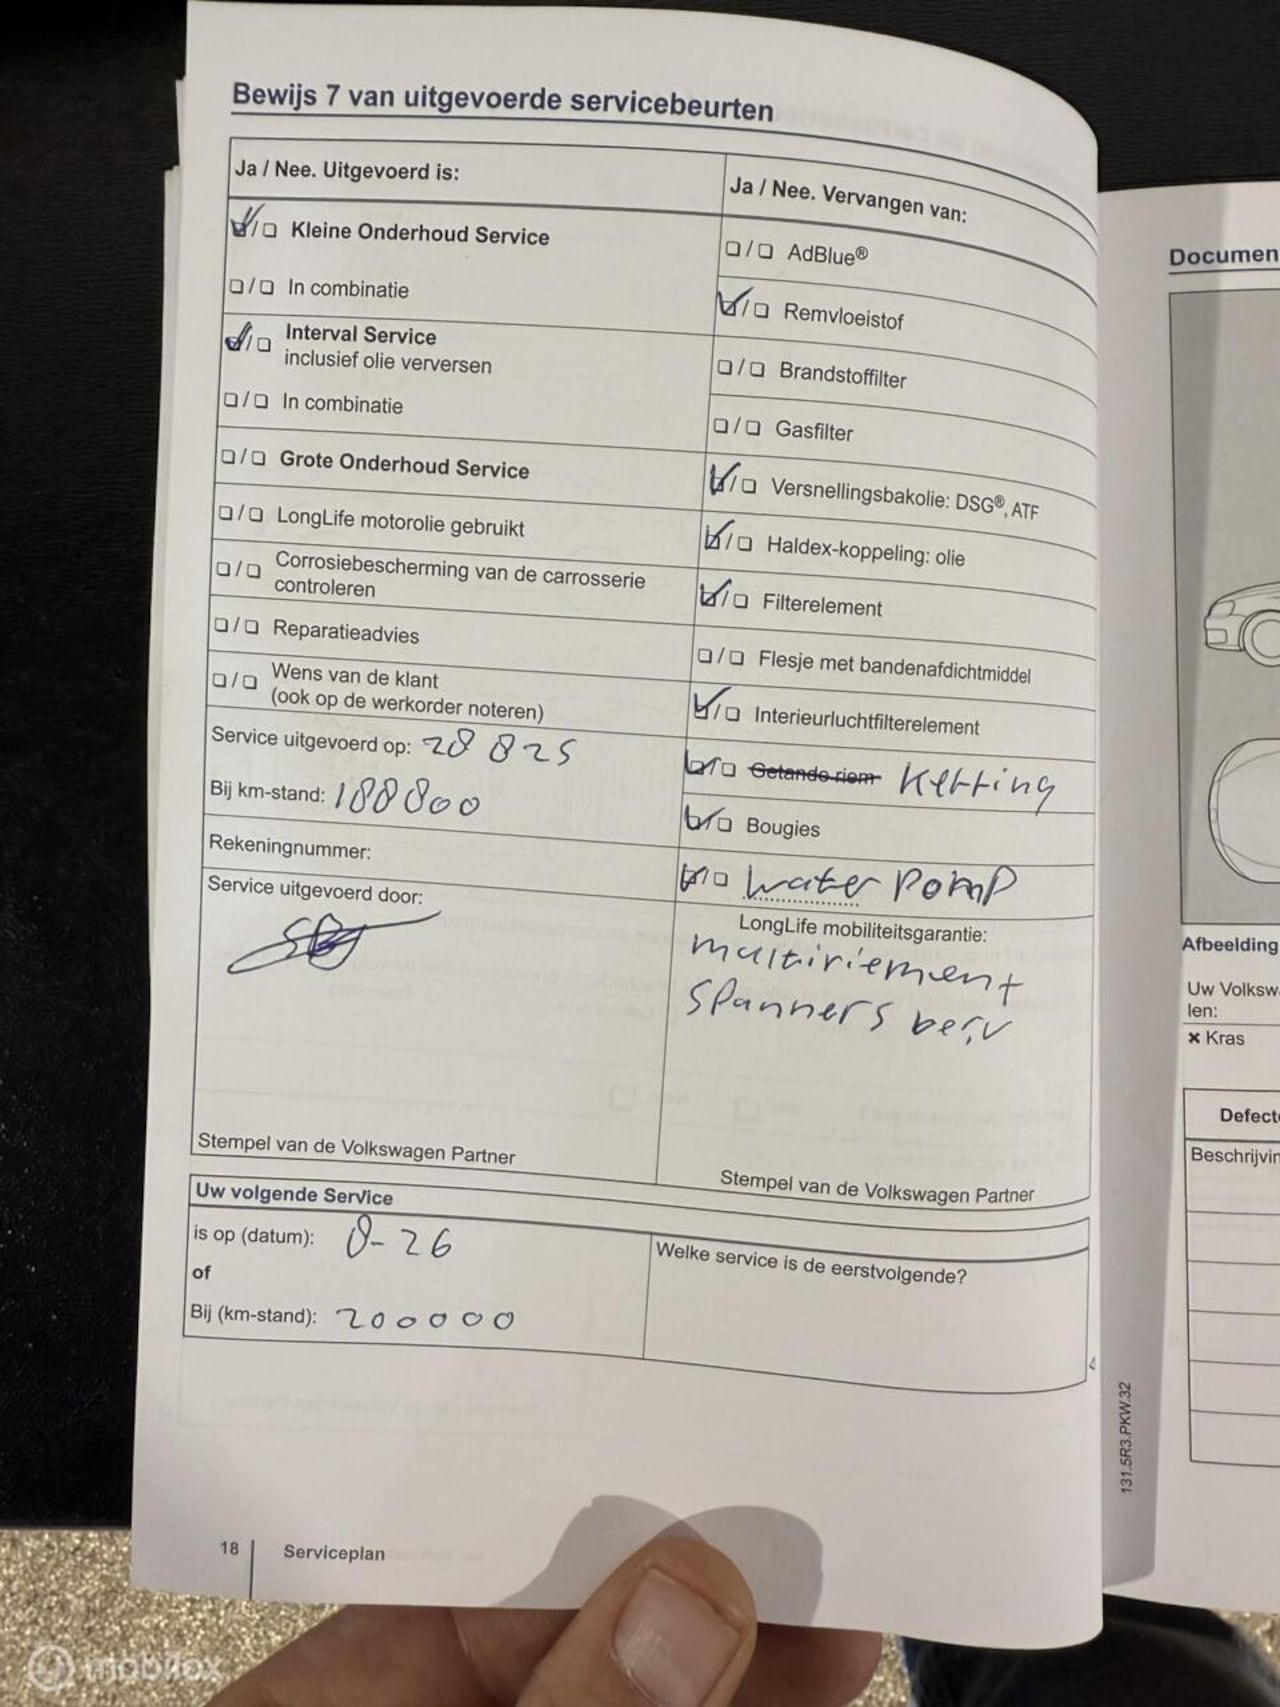 Bewijs 7 van uitgevoerde servicebeurten
Ja / Nee. Uitgevoerd is:
Kleine Onderhoud Service
In combinatie
Interval Service
inclusief olie verversen
In combinatie
Grote Onderhoud Service
LongLife motorolie gebruikt
Corrosiebescherming van de carrosserie
controleren
Reparatieadvies
Wens van de klant
(ook op de werkorder noteren)
Service uitgevoerd op: 28 8 25
Bij km-stand: 188800
Rekeningnummer:
Service uitgevoerd door:
Stempel van de Volkswagen Partner
Ja / Nee. Vervangen van:
AdBlue®
Remvloeistof
Brandstoffilter
Gasfilter
Versnellingsbakolie: DSG®, ATF
Haldex-koppeling: olie
Filterelement
Flesje met bandenafdichtmiddel
Interieurluchtfilterelement
Getande riem Ketting
Bougies
water Pomp
LongLife mobiliteitsgarantie:
multiriem en +
Spanners
Stempel van de Volkswagen Partner
Uw volgende Service
is op (datum): 8-26
of
Bij (km-stand): 200000
Welke service is de eerstvolgende?
18 Serviceplan
131.5R3.PKW.32
Documen
Afbeelding
Uw Volksw
len:
× Kras
Defect
Beschrijvin
mobilox